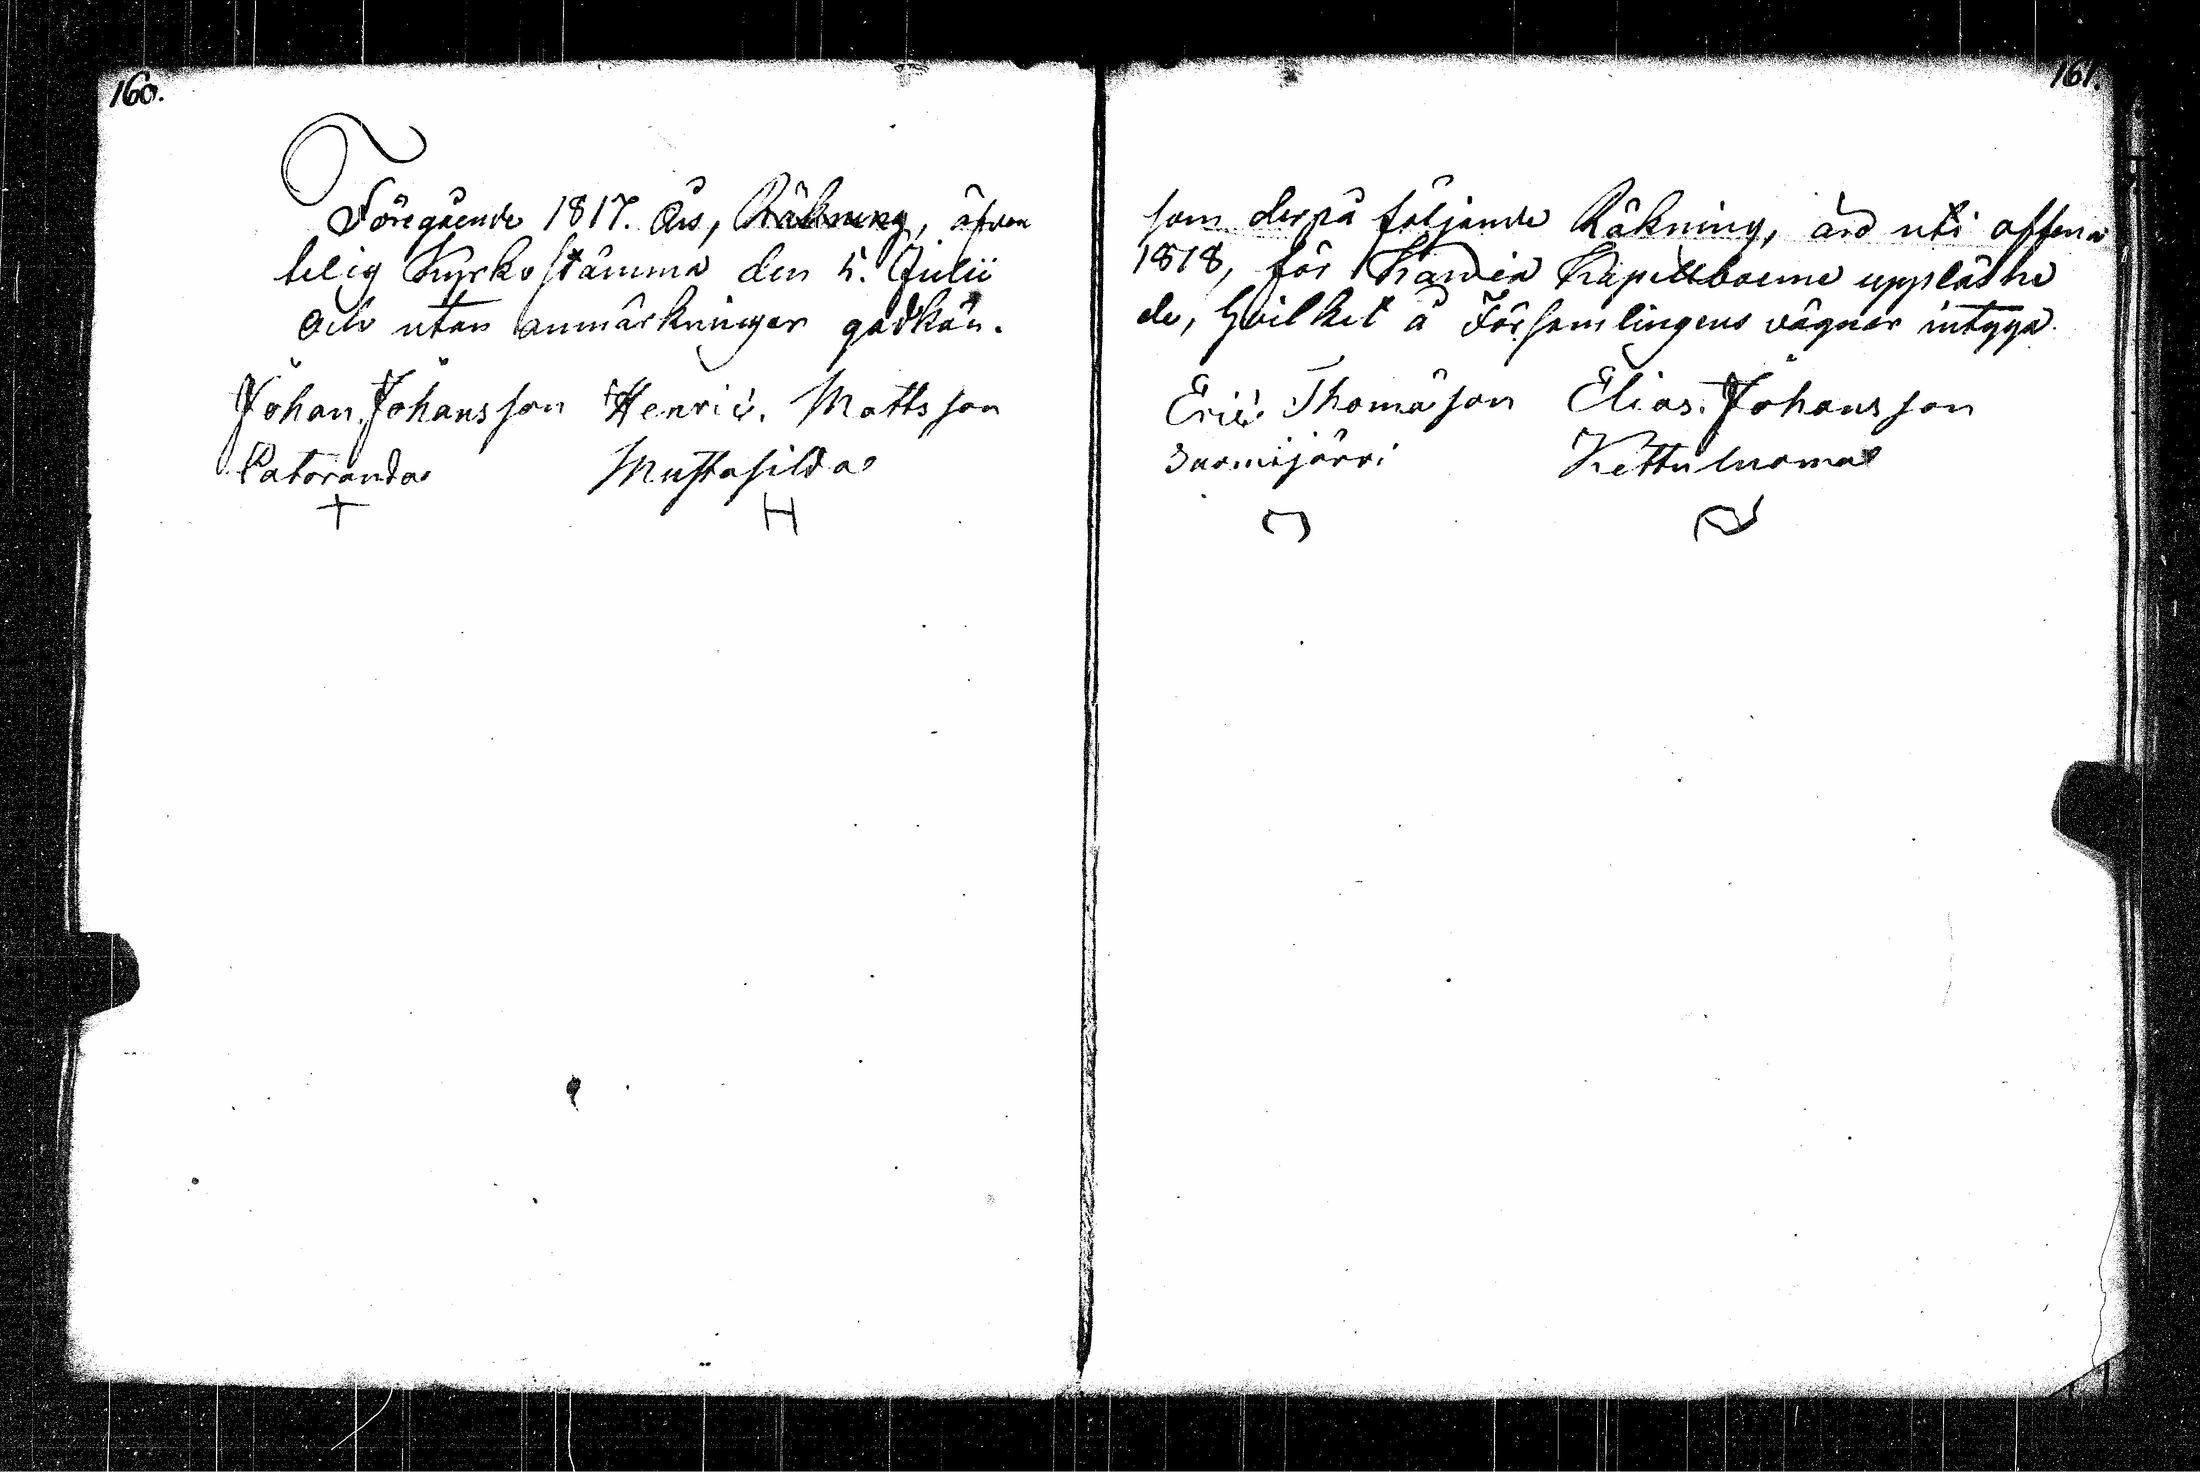 160.
Föregående 1817. Års, Räkning, äfven
telig Kyrkostämma den 5. Julii
och utan anmärkningar godkän-
Johan. Johansson Henric. Mattsson
Patoranda Mustasilda
+ H
161.
som derpå följande Räkning, äro uti offen
1818, för Kapellboerne uppläste
de, hvilket å Församlingens vägnar intyga.
Eric Thomasson Elias. Johansson
Suomijärvi Kettuluoma